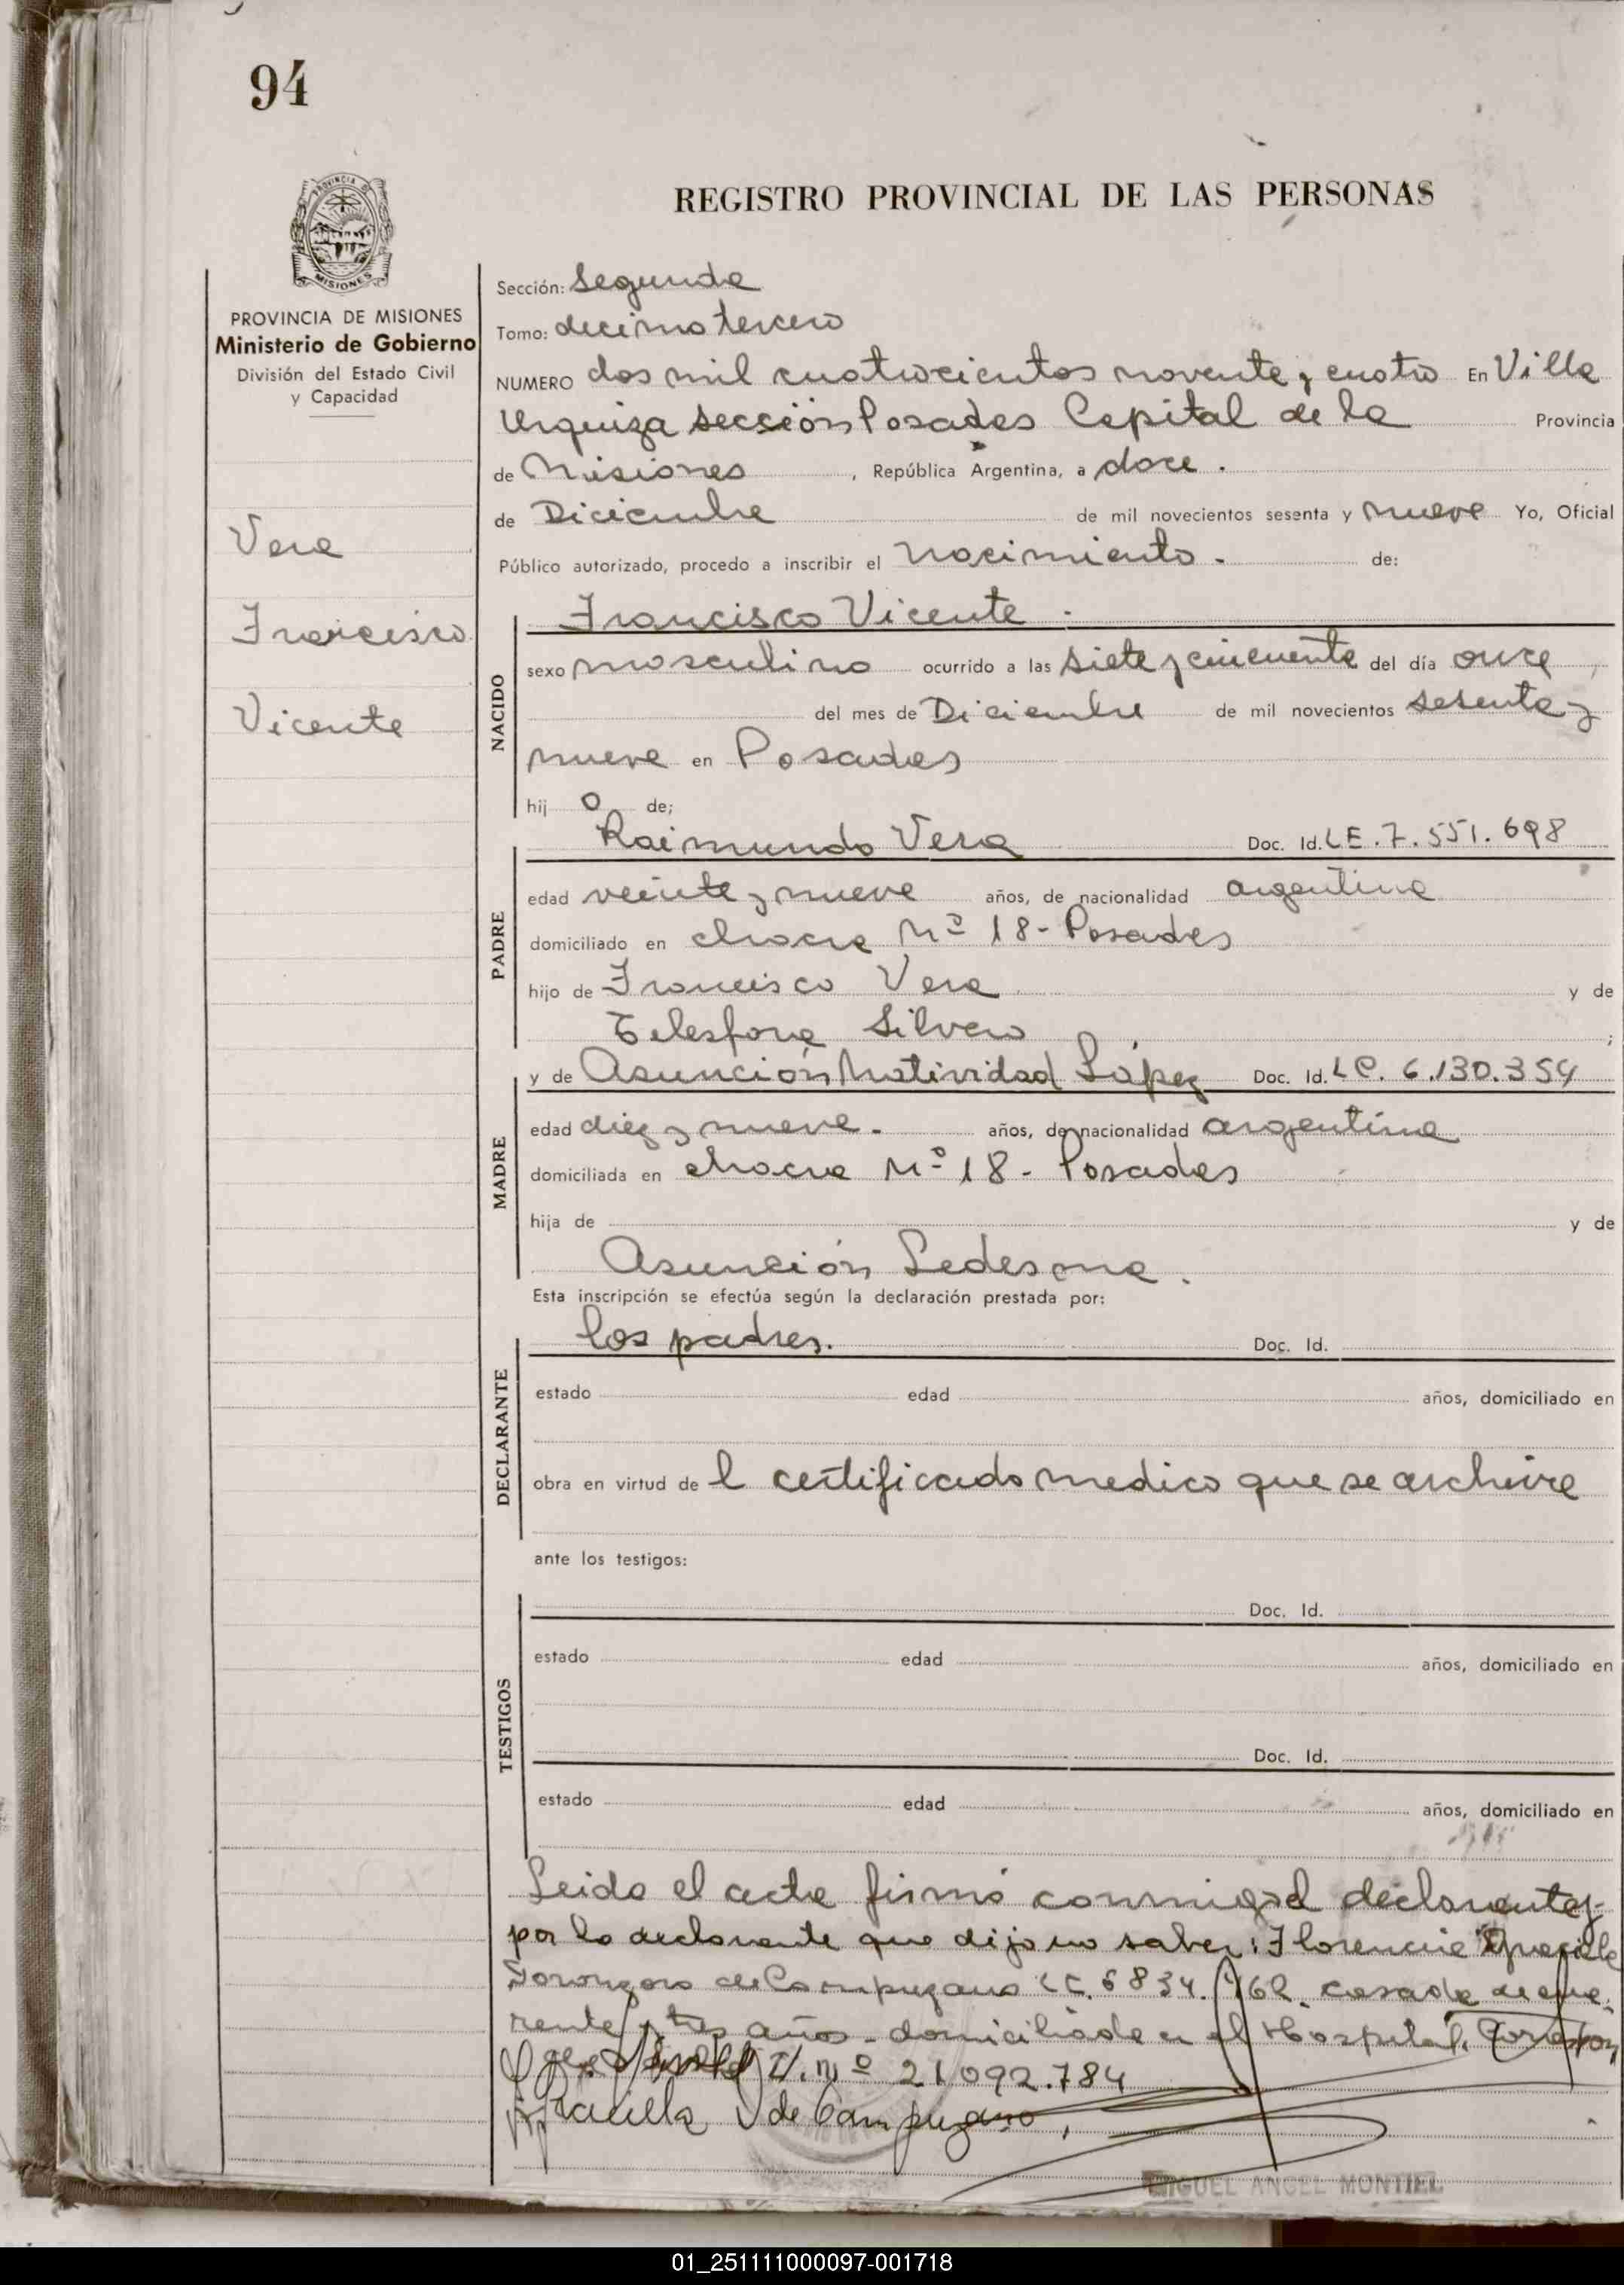 94
PROVINCIA DE
MISIONES
PROVINCIA DE MISIONES
Ministerio de Gobierno
División del Estado Civil
y Capacidad
Vera
Francisco
Vicente
REGISTRO PROVINCIAL DE LAS PERSONAS
Sección: Segunda
Tomo: decimo tercero
NUMERO dos mil cuatrocientos noventa y cuatro En Villa
Urquiza sección Posadas Capital de la Provincia
de Misiones, República Argentina, a doce.
de Diciembre de mil novecientos sesenta y nueve Yo, Oficial
Público autorizado, procedo a inscribir el nacimiento. de:
NACIDO
Francisco Vicente
sexo masculino ocurrido a las siete y cincuenta del día once
del mes de Diciembre de mil novecientos sesenta y
nueve en Posadas
hij o de;
PADRE
Raimundo Vera Doc. Id. LE. 7.551.698
edad veinte y nueve años, de nacionalidad argentina
domiciliado en chacra Nº 18 - Posadas
hijo de Francisco Vera y de
Telesfora Silvero ;
MADRE
y de Asunción Natividad López Doc. Id. LC. 6.130.354
edad diez y nueve. años, de nacionalidad argentina
domiciliada en chacra Nº 18 - Posadas
hija de y de
Asunción Ledesma.
Esta inscripción se efectúa según la declaración prestada por:
DECLARANTE
los padres. Doc. Id.
estado edad años, domiciliado en
obra en virtud de l certificado medico que se archiva
ante los testigos:
TESTIGOS
Doc. Id.
estado edad años, domiciliado en
Doc. Id.
estado edad años, domiciliado en
Leida el acta firmó conmigo el declarante y
por la declarante que dijo no saber: Florencia
de Campuzano LC. 6834. 162. casada de cua
renta y tres años - domiciliada en el Hospital.
Nº 21092.784
de Campuzano
MIGUEL ANGEL MONTIEL
01_251111000097-001718